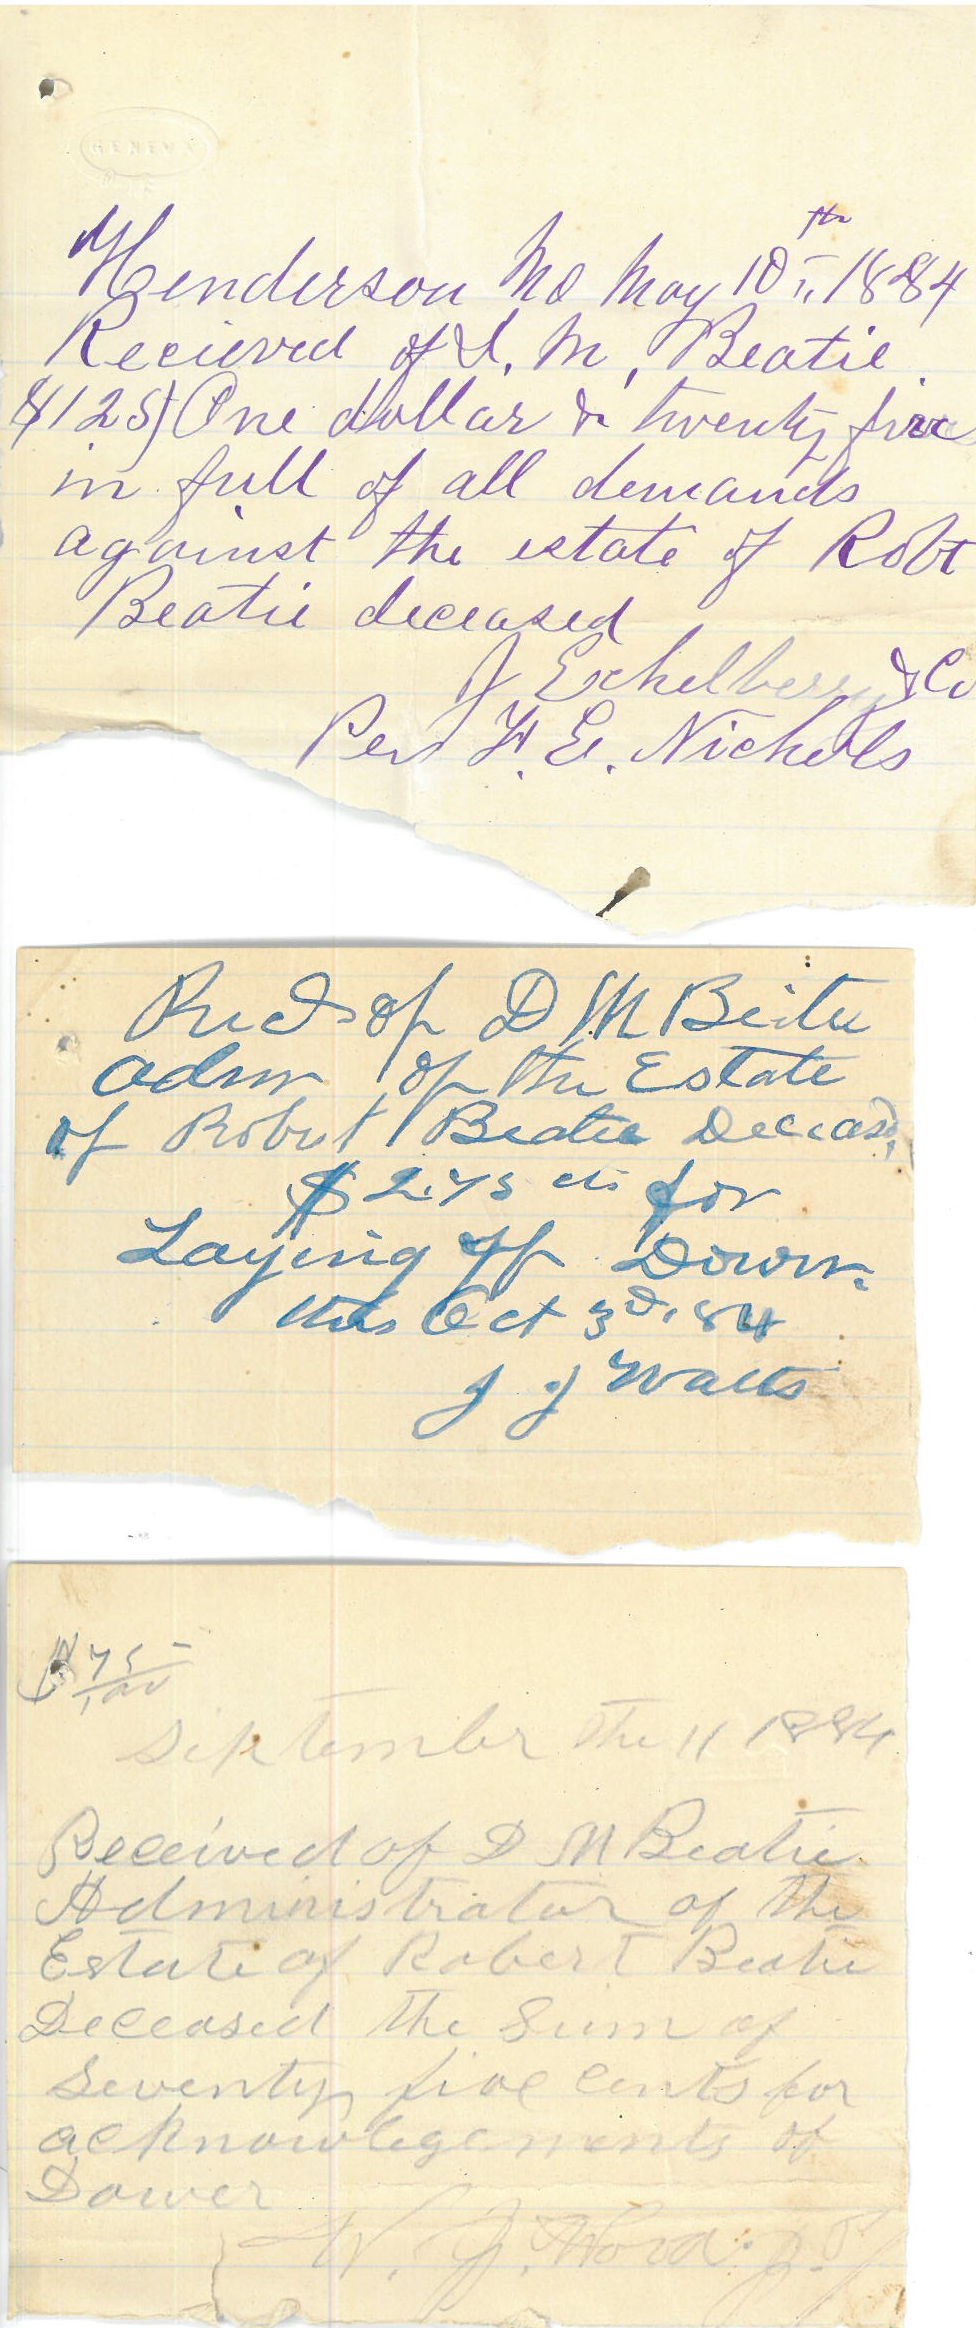 Henderson Mo May 10th 1884
Recieved of D. M. Beatie
$125) One dollar & twenty five
in full of all demands
against the estate of Robt
Beatie deceased
J Eichelberry & Co
Per W. E. Nichols
Recd of D M Beatie
Admr of the Estate
of Robert Beatie Deceasd,
$2.75 cts for
Laying off Dowr.
this Oct 3d, 84
J J Watts
$ 75/100
September the 11 1884
Received of D M Beatie
Administrator of the
Estate of Robert Beatie
Deceased the Sum of
Seventy five cents for
acknowlegements of
Dower
W. J. Wood J. P.